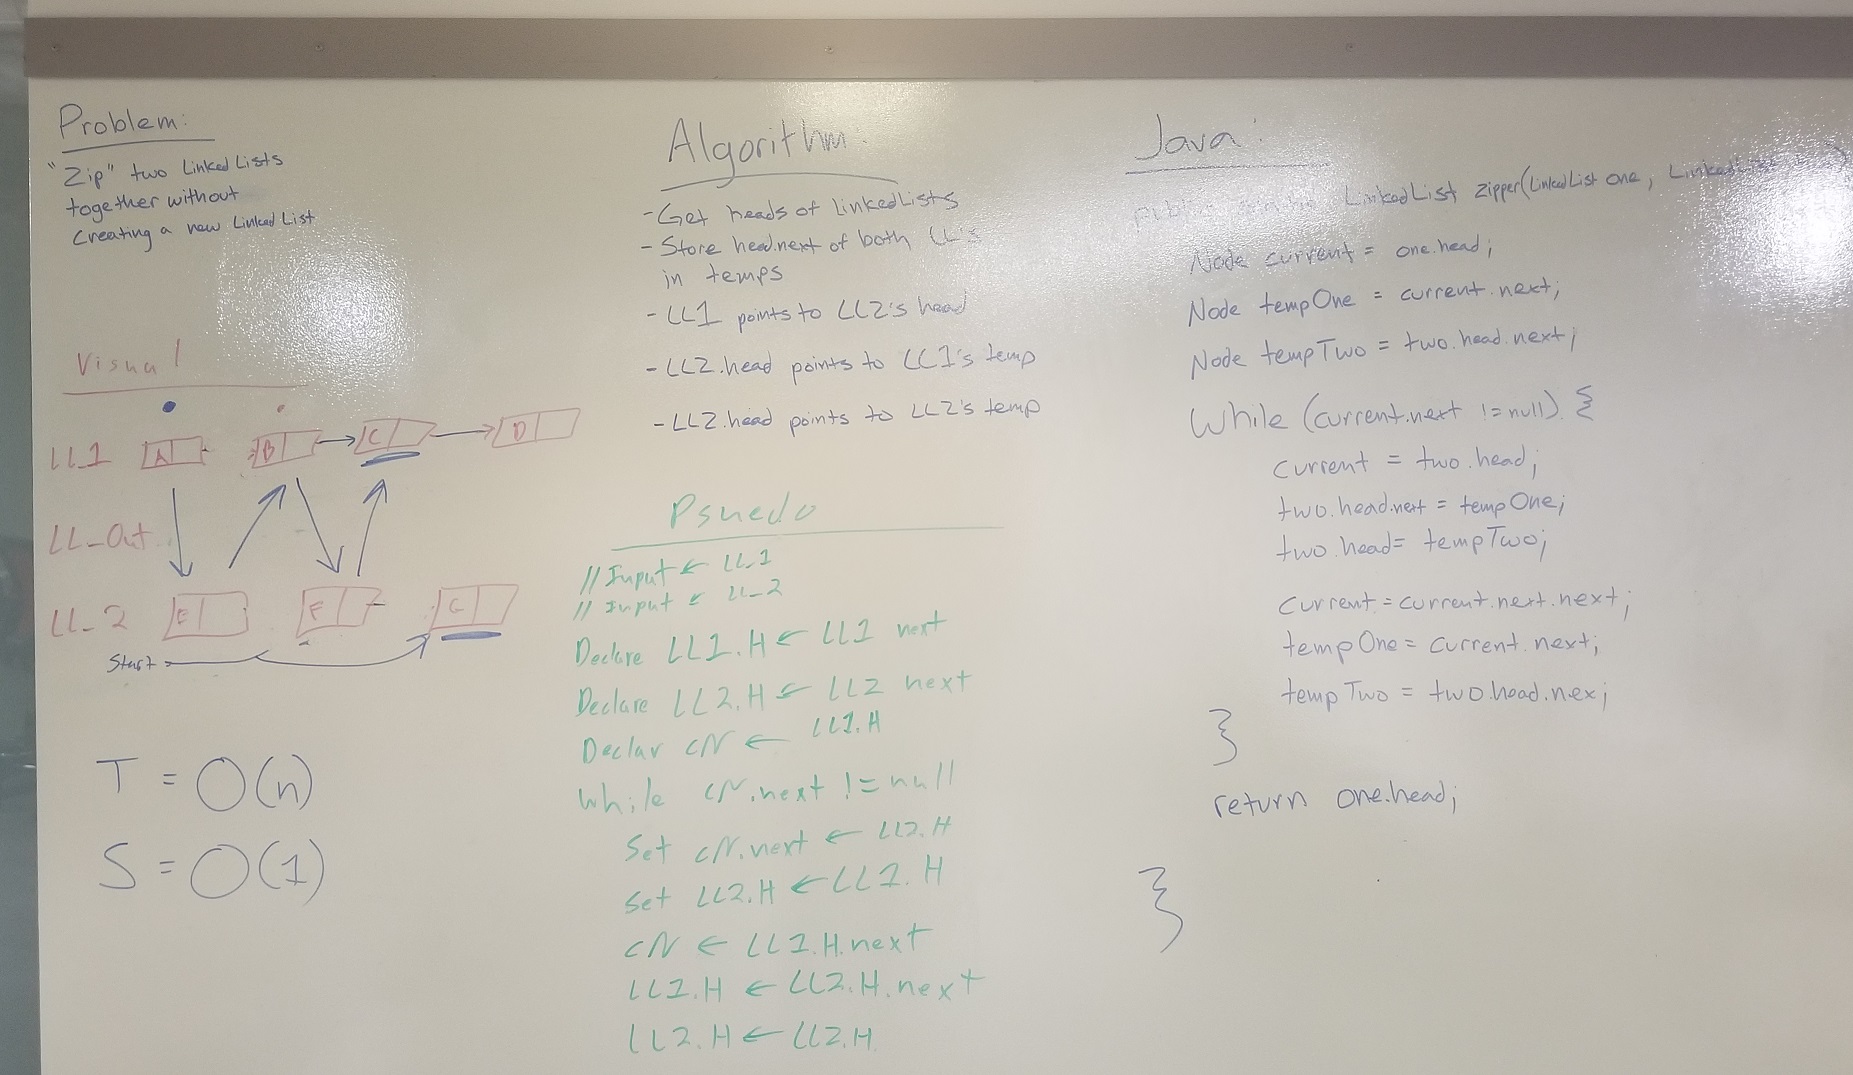 Problem:
"Zip" two Linked Lists
together without
Creating a new Linked List
Visual
LL1 A B C D
LL_Out
LL_2 E F G
Start
T = O(n)
S = O(1)
Algorithm:
- Get heads of linkedLists
- Store head.next of both LL's
in temps
- LL1 points to LL2's head
- LL2.head points to LL1's temp
- LL2.head points to LL2's temp
Psuedo
// Input ← LL_1
// Input ← LL_2
Declare LL1.H ← LL1 next
Declare LL2.H ← LL2 next
Declar cN ← LL1.H
While cN.next != null
Set cN.next ← LL2.H
Set LL2.H ← LL1.H
cN ← LL1.H.next
LL1.H ← LL2.H.next
LL2.H ← LL2.H
Java:
public static LinkedList zipper(LinkedList one, LinkedList
Node current = one.head;
Node tempOne = current.next;
Node tempTwo = two.head.next;
While (current.next != null) {
current = two.head;
two.head.next = tempOne;
two.head = tempTwo;
current = current.next.next;
tempOne = current.next;
tempTwo = two.head.nex;
}
return one.head;
}